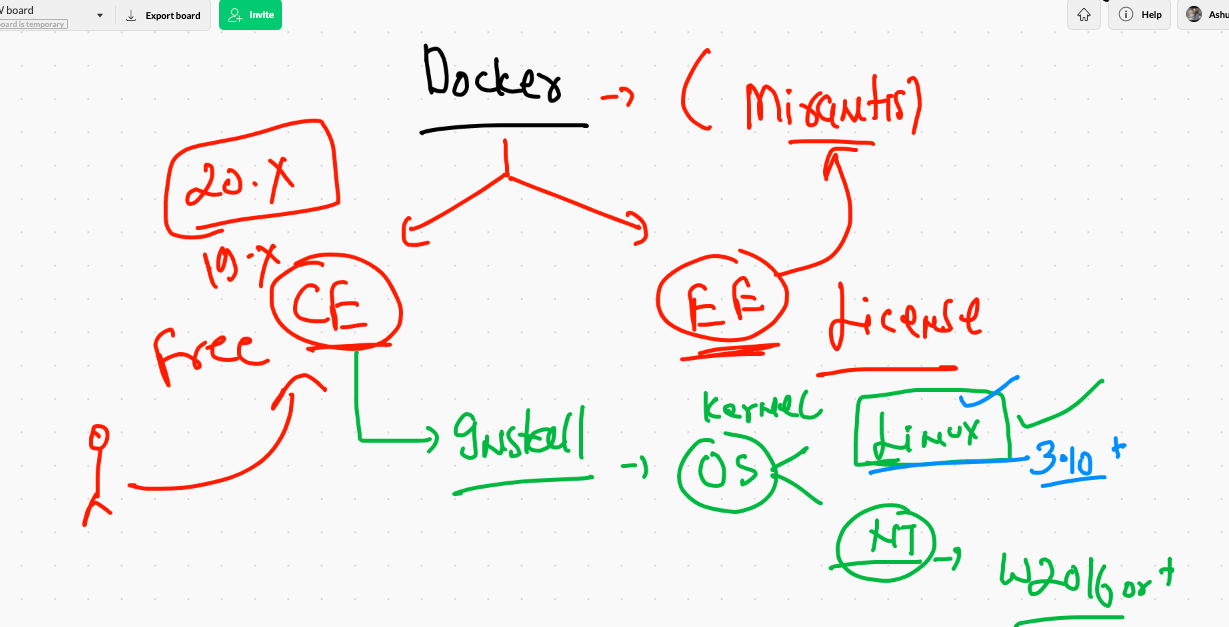 V board
board is temporary
Export board
Invite
Help
Ashu
Docker → (Mirantis)
20.X
19.X
CE
EE
Free
License
Install → OS
Kernel
Linux
3.10+
NT → W2016 or +